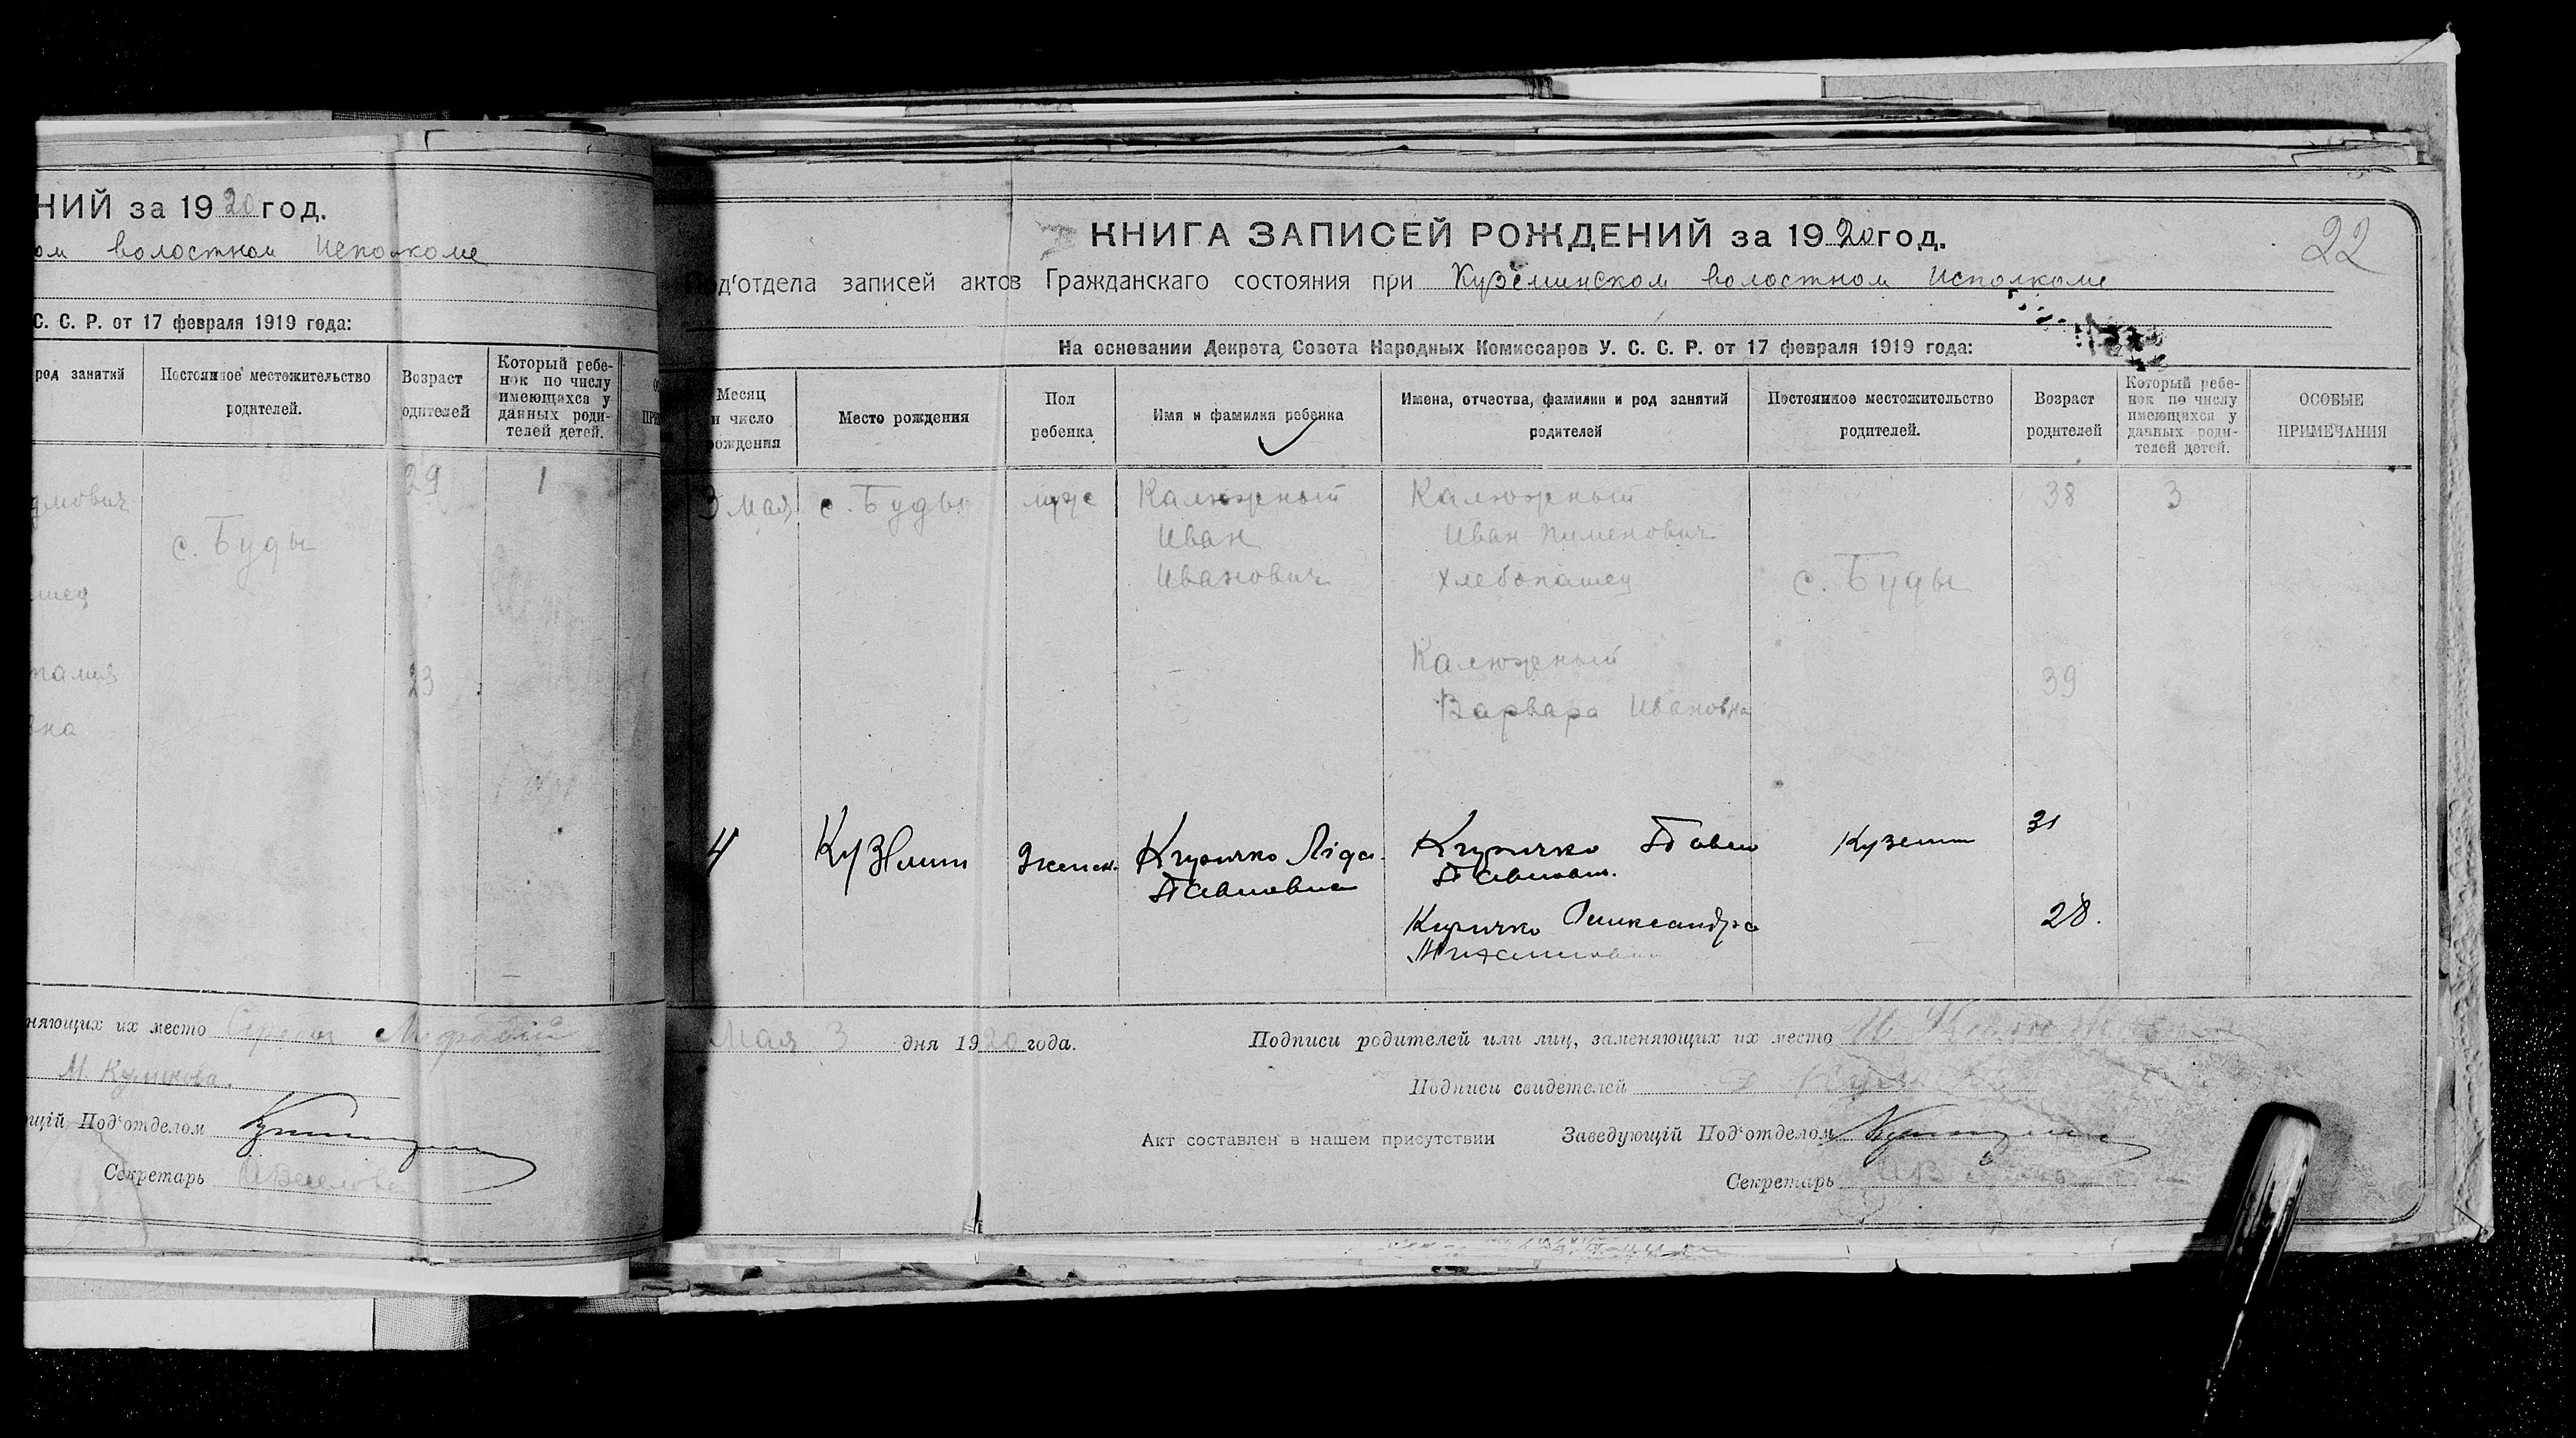 НИЙ за 1920 год.
ом волостном Исполкоме
С. С. Р. от 17 февраля 1919 года:
род занятий
Постоянное местожительство родителей.
Возраст одителей
Который ребе-
нок по числу
имеющихся у
данных роди-
телей детей.
29
1
с. Буды
23
няющих их место
М.
щій Под'отделом
Секретарь
22
КНИГА ЗАПИСЕЙ РОЖДЕНИЙ за 1920 год.
Под'отдела записей актов Гражданскаго состояния при Куземинском волостном Исполкоме
На основании Декрета Совета Народных Комиссаров У. С. С. Р. от 17 февраля 1919 года:
Месяц
и число
рождения
Место рождения
Пол
ребенка
Имя и фамилия ребенка
Имена, отчества, фамилии и род занятий
родителей
Постоянное местожительство
родителей.
Возраст
родителей
Который ребе-
нок по числу
имеющихся у
данных роди-
телей детей.
ОСОБЫЕ
ПРИМЕЧАНИЯ
3 мая
с. Буды
муж
Калюжный
Иван
Иванович
Калюжный
Иван Пименович
хлебопашец
Калюжный
Варвара Ивановна
с. Буды
38
39
3
4
Кузємин
Женск.
Киричко Ліда
Павловна
Киричко Павел
Павлович.
Киричко Александра
Куземин
31
28.
Мая 3 дня 1920 года.
Подписи родителей или лиц, заменяющих их место
Подписи свидетелей
Акт составлен в нашем присутствии
Заведующій Под'отделом
Секретарь